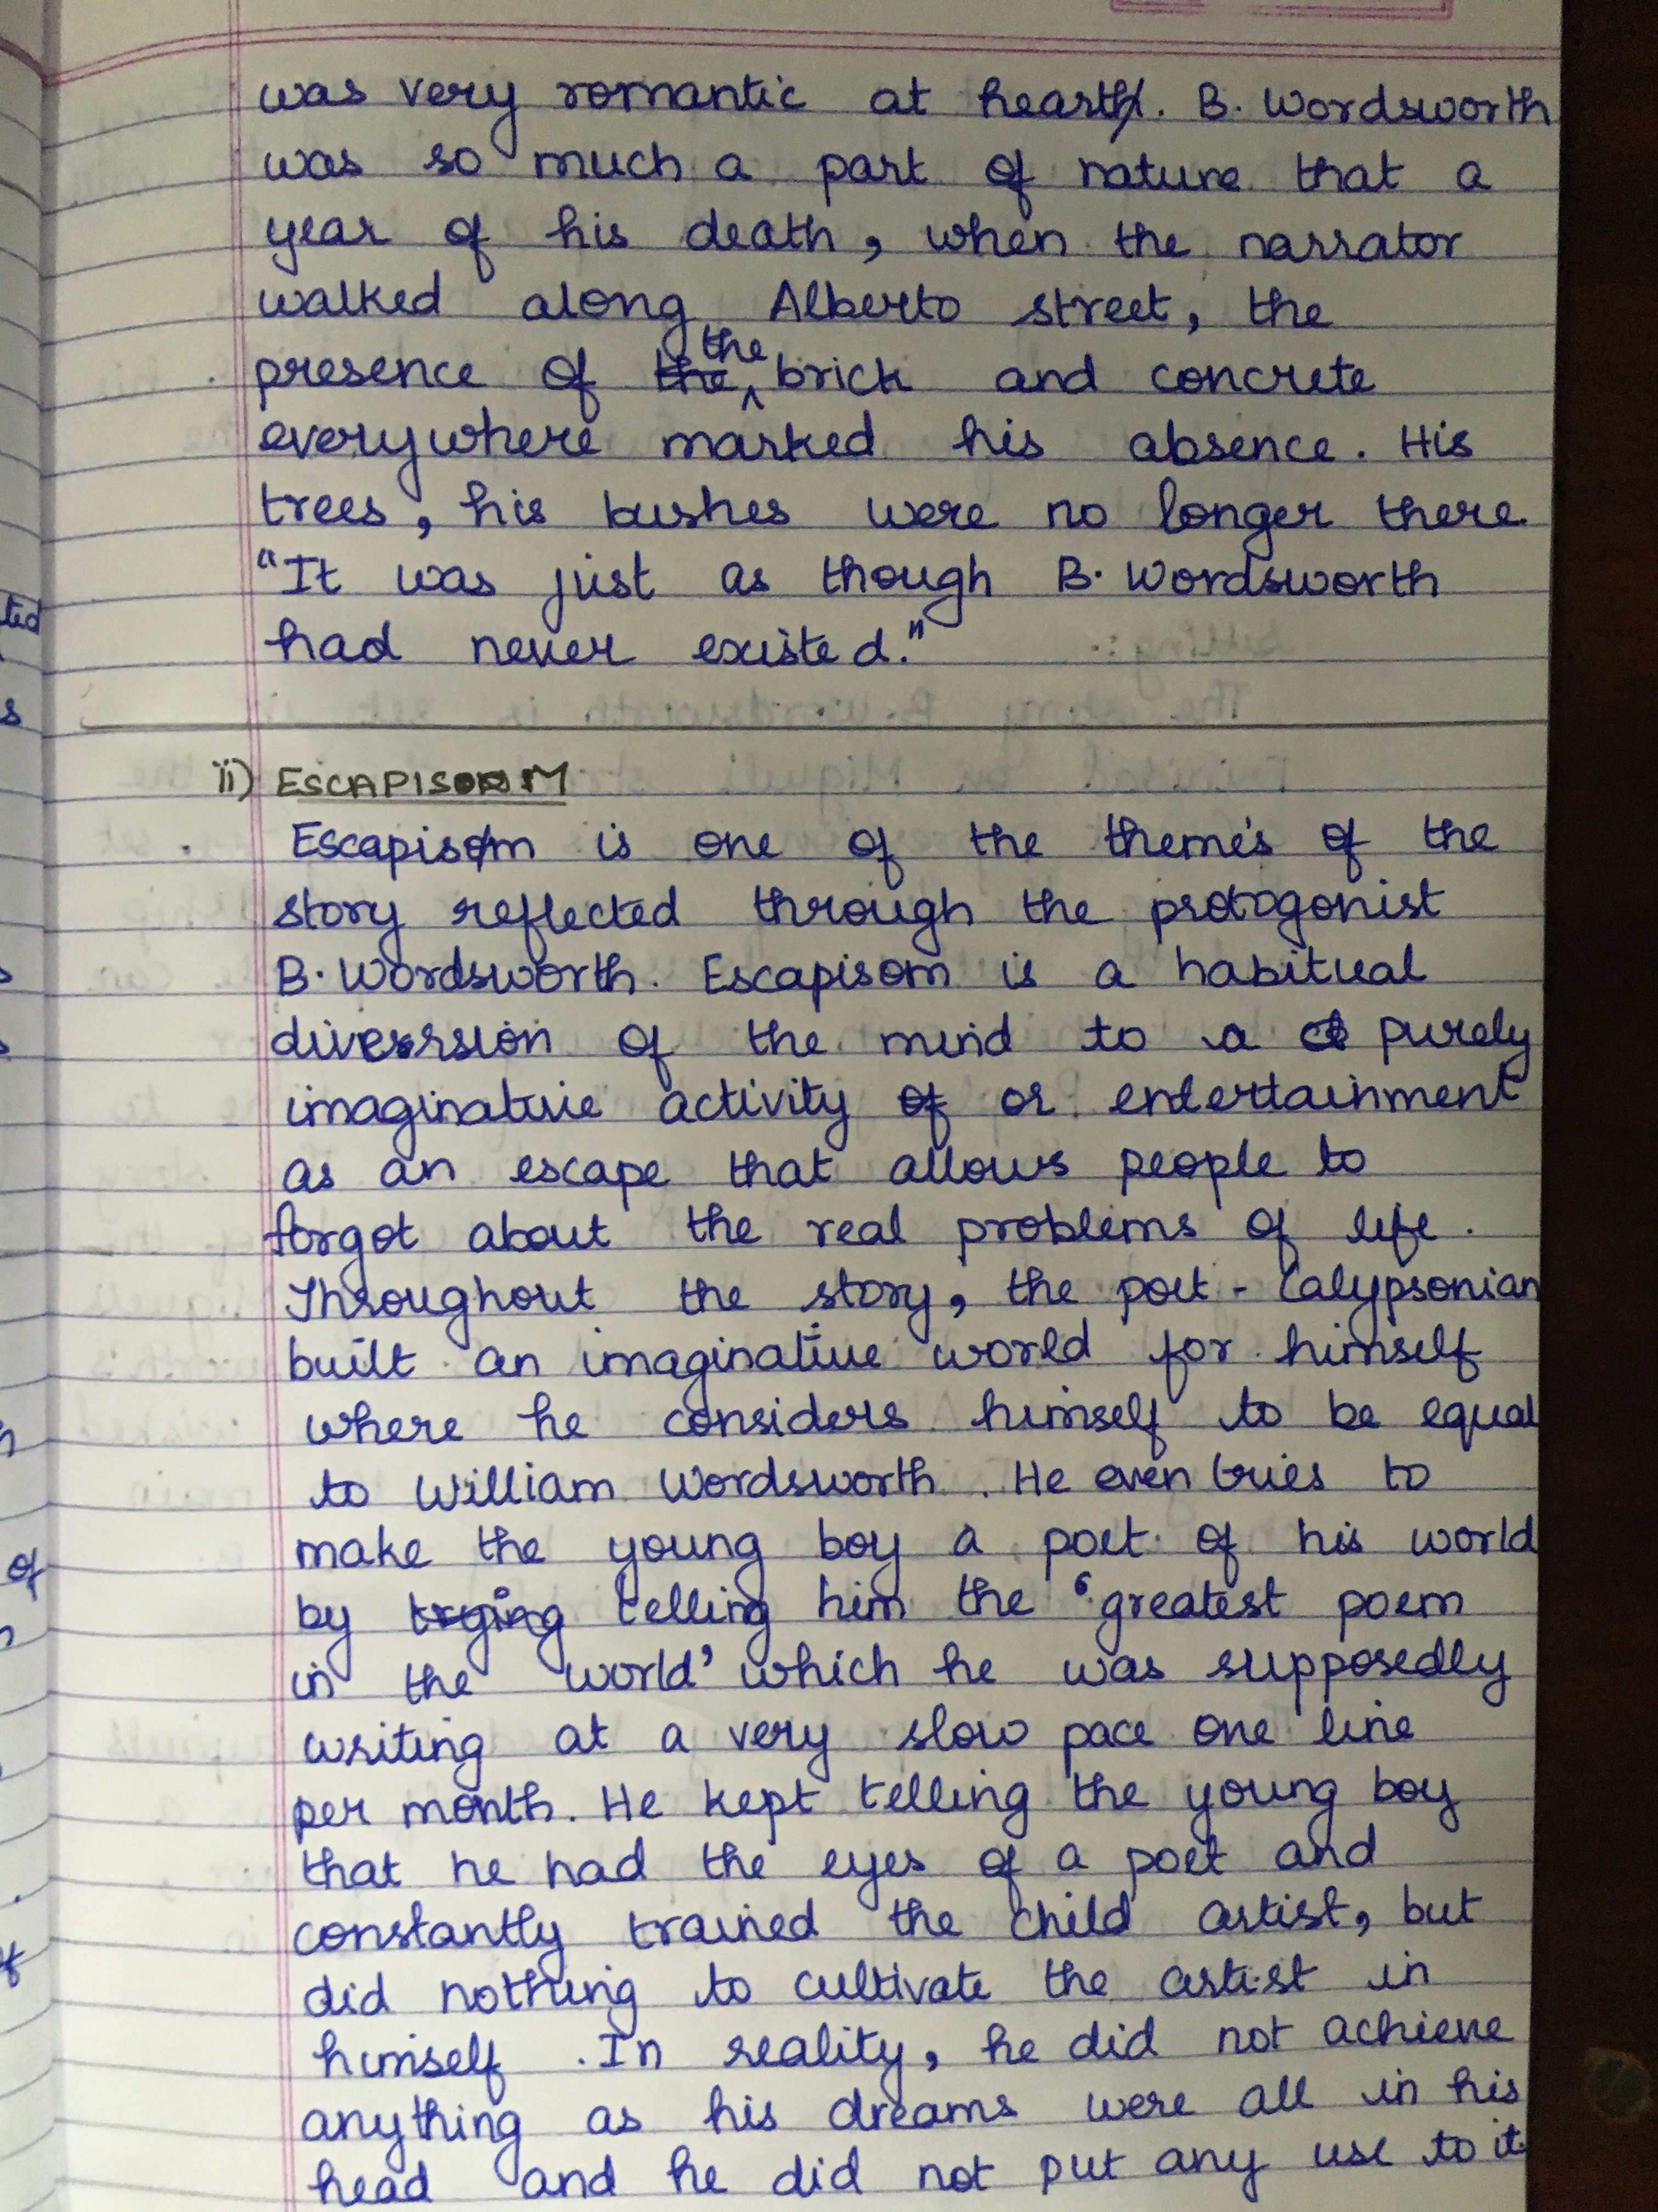 was very romantic at heart. B. Wordsworth
was so much a part of nature that a
year of his death, when the narrator
walked along Alberto street, the
presence of the brick and concrete
everywhere marked his absence. His
trees, his bushes were no longer there.
"It was just as though B. Wordsworth
had never existed."
ii) ESCAPISM
Escapism is one of the theme's of the
story reflected through the protogonist
B. Wordsworth. Escapisom is a habitual
diversion of the mind to a purely
imaginative activity or entertainment
as an escape that allows people to
forgot about the real problems of life.
Throughout the story, the poet - Calypsonian
built an imaginative world for himself
where he considers himself to be equal
to William Wordsworth. He even tries to
make the young boy a poet of his world
by telling him the 'greatest poem
in the world' which he was supposedly
writing at a very slow pace one line
per month. He kept telling the young boy
that he had the eyes of a poet and
constantly trained the child artist, but
did nothing to cultivate the artist in
himself. In reality, he did not achieve
anything as his dreams were all in his
head and he did not put any use to it.
ted
s
of